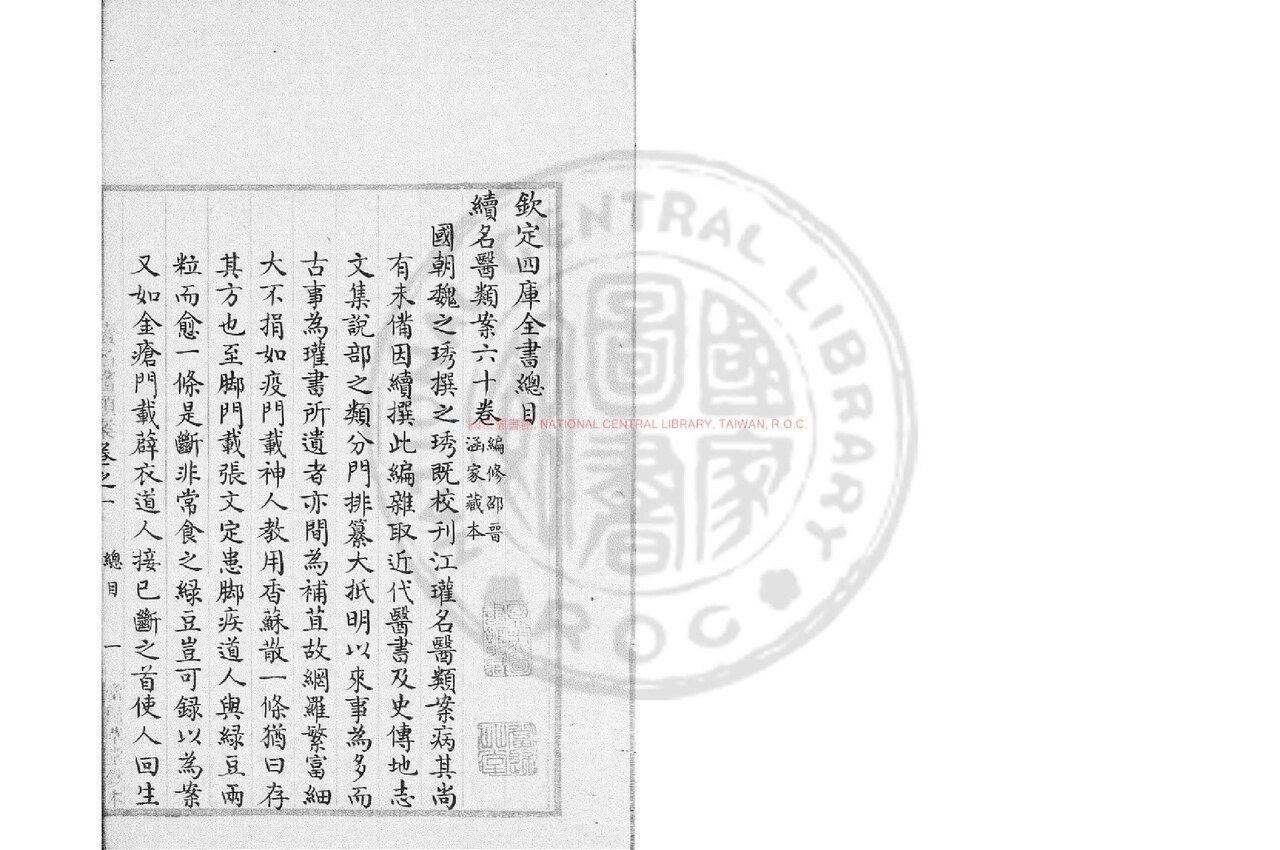 欽定四庫全書總目
續名醫類案六十卷
編修邵晉
涵家藏本
國朝魏之琇撰之琇既校刊江瓘名醫類案病其尚
有未備因續撰此編雜取近代醫書及史傳地志
文集說部之類分門排纂大抵明以來事為多而
古事為瓘書所遺者亦間為補苴故網羅繁富細
大不捐如疫門載神人教用香蘇散一條猶曰存
其方也至脚門載張文定患脚疾道人與綠豆兩
粒而愈一條是斷非常食之綠豆豈可録以為案
又如金瘡門載薜衣道人接已斷之首使人回生
卷之一
總目
一
NATIONAL CENTRAL LIBRARY, TAIWAN, R.O.C.
CENTRAL LIBRARY
R.O.C